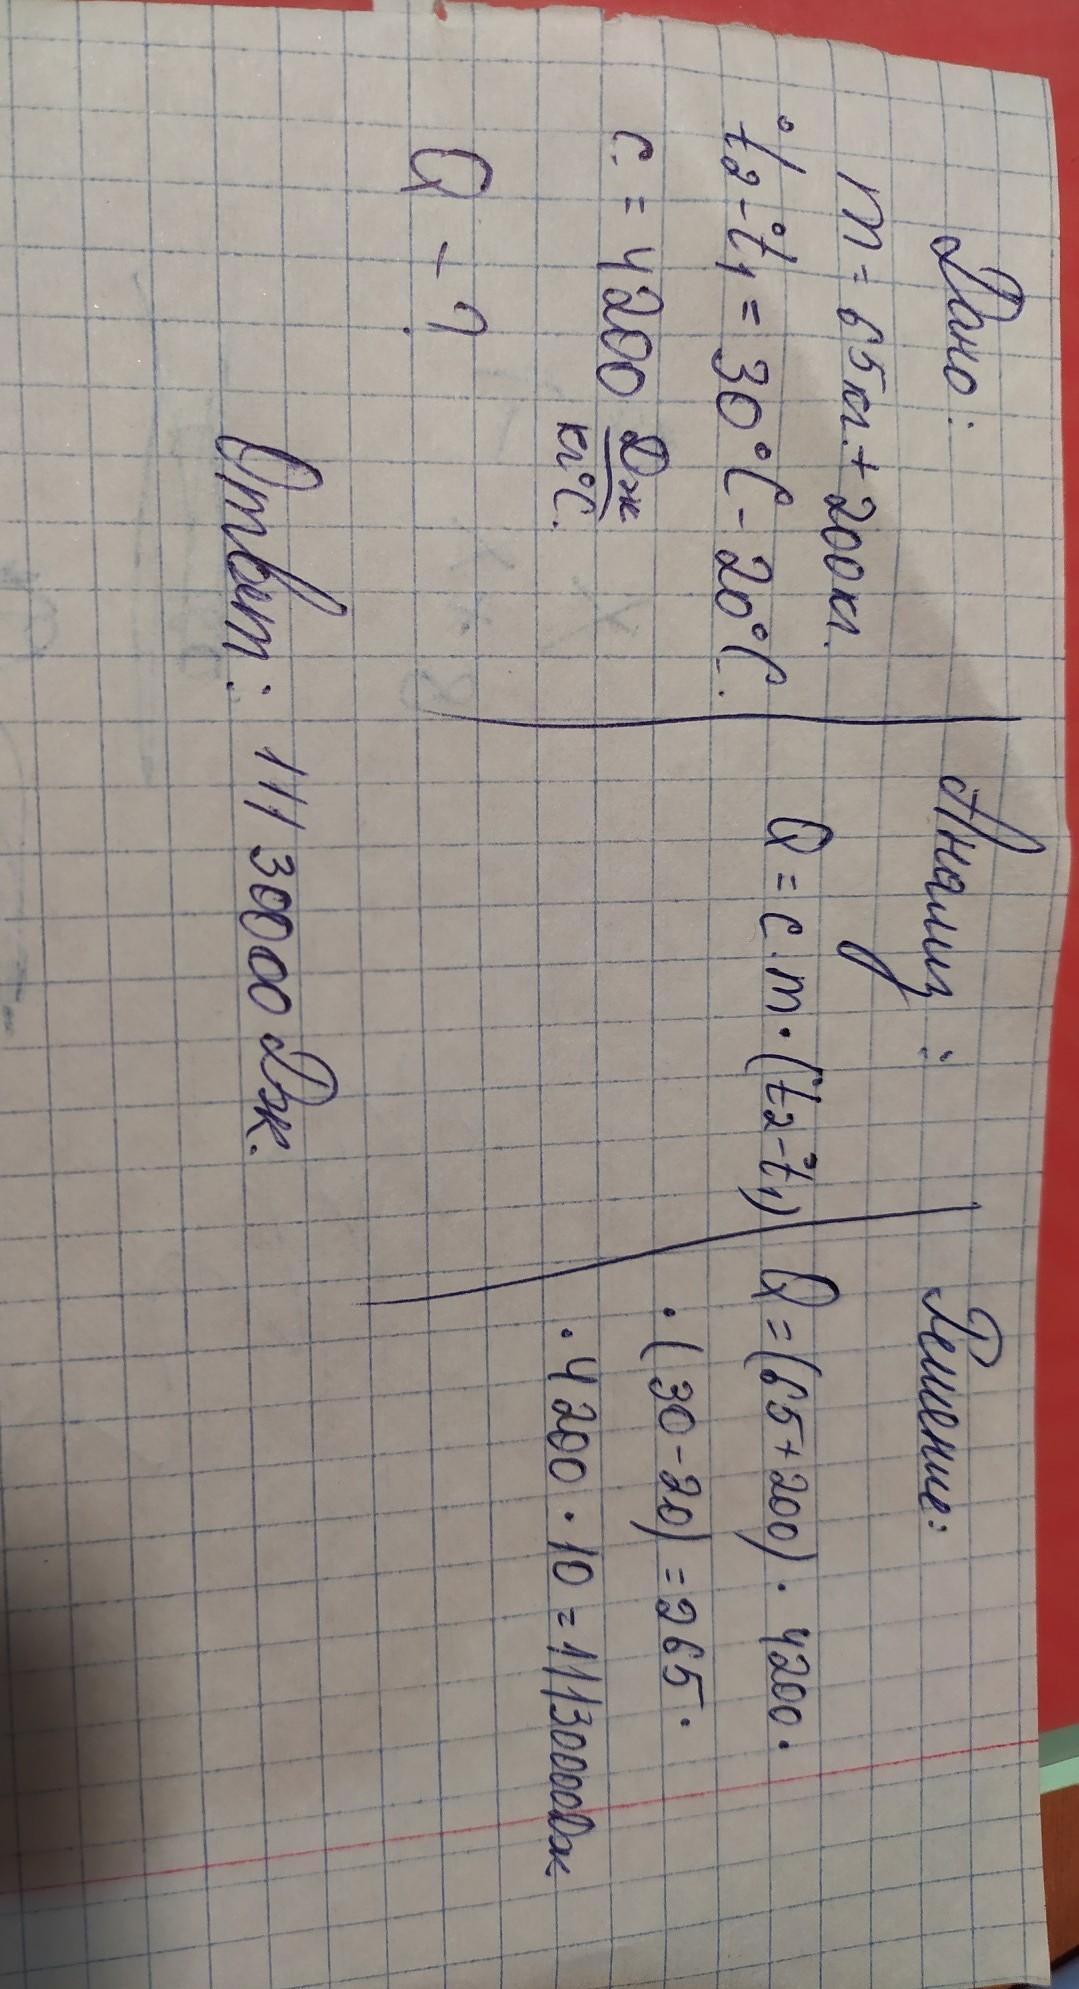 Дано:
m = 65кг. + 200кг.
t°2 - t°1 = 30°С - 20°С.
с. = 4200 Дж
кг°С.
Q - ?
Анализ:
Q = с. m · (t°2 - t°1)
Решение:
Q = (65 + 200) · 4200 ·
· (30 - 20) = 265 ·
· 4200 · 10 = 11130000Дж
Ответ: 11130000 Дж.